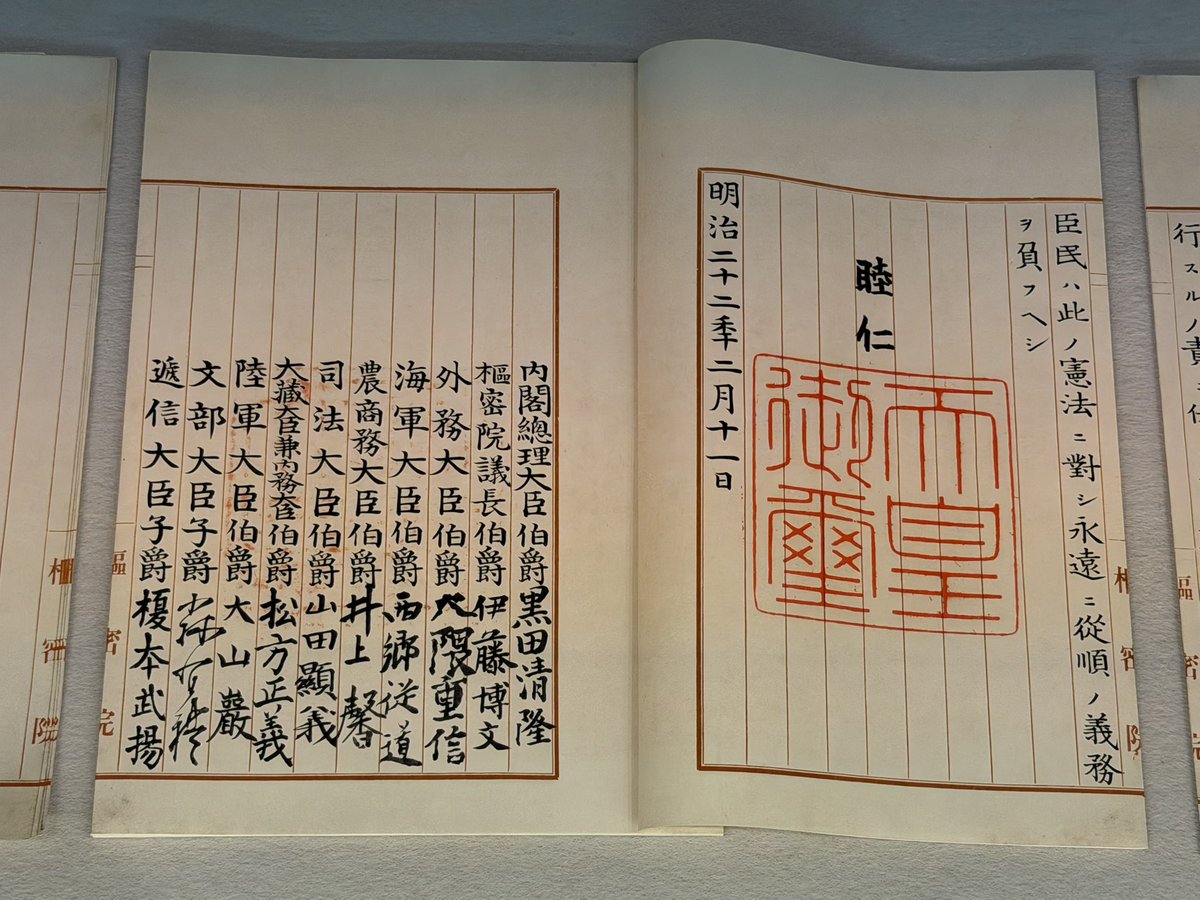 行スルノ責
臣民ハ此ノ憲法ニ對シ永遠ニ從順ノ義務
ヲ負フヘシ
睦仁
天皇
御璽
明治二十二年二月十一日
內閣總理大臣伯爵黑田清隆
樞密院議長伯爵伊藤博文
外務大臣伯爵大隈重信
海軍大臣伯爵西鄉從道
農商務大臣伯爵井上馨
司法大臣伯爵山田顯義
大藏大臣兼內務大臣伯爵松方正義
陸軍大臣伯爵大山巖
文部大臣子爵
遞信大臣子爵榎本武揚
樞密院
樞密院